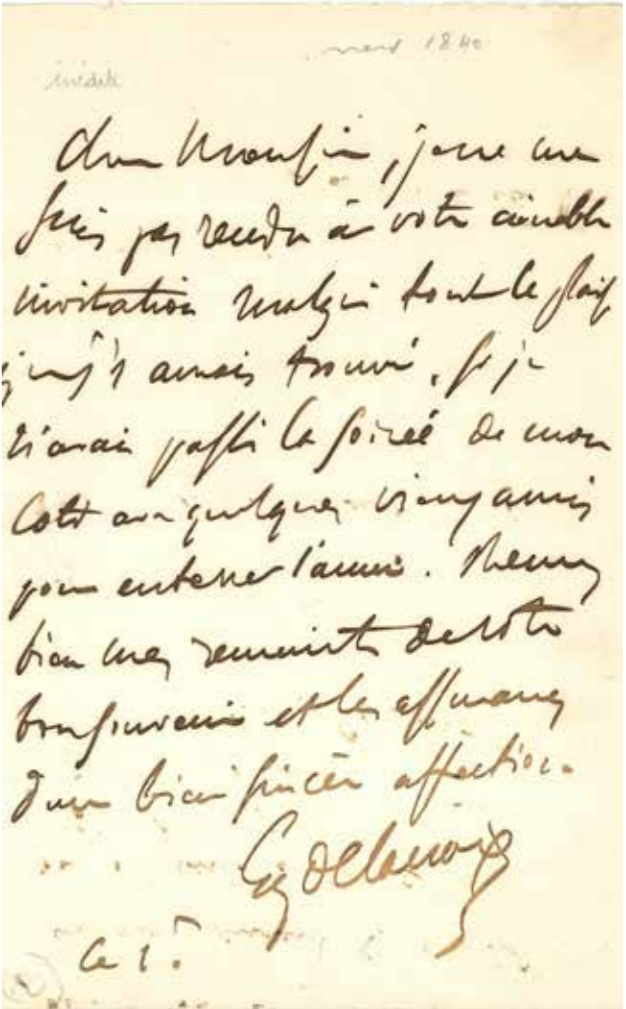 mars 1840
inédite
cher Monsieur, je ne me
suis pas rendu à votre aimable
invitation malgré tout le plaisir
que j'y aurais trouvé, si je
n'avais passé la soirée de mon
coté avec quelques vieux amis
pour enterrer l'année. Recevez
bien mes remerciements de votre
bon souvenir et les assurances
d'une bien sincère affection.
Eug Delacroix
Ce 1er.